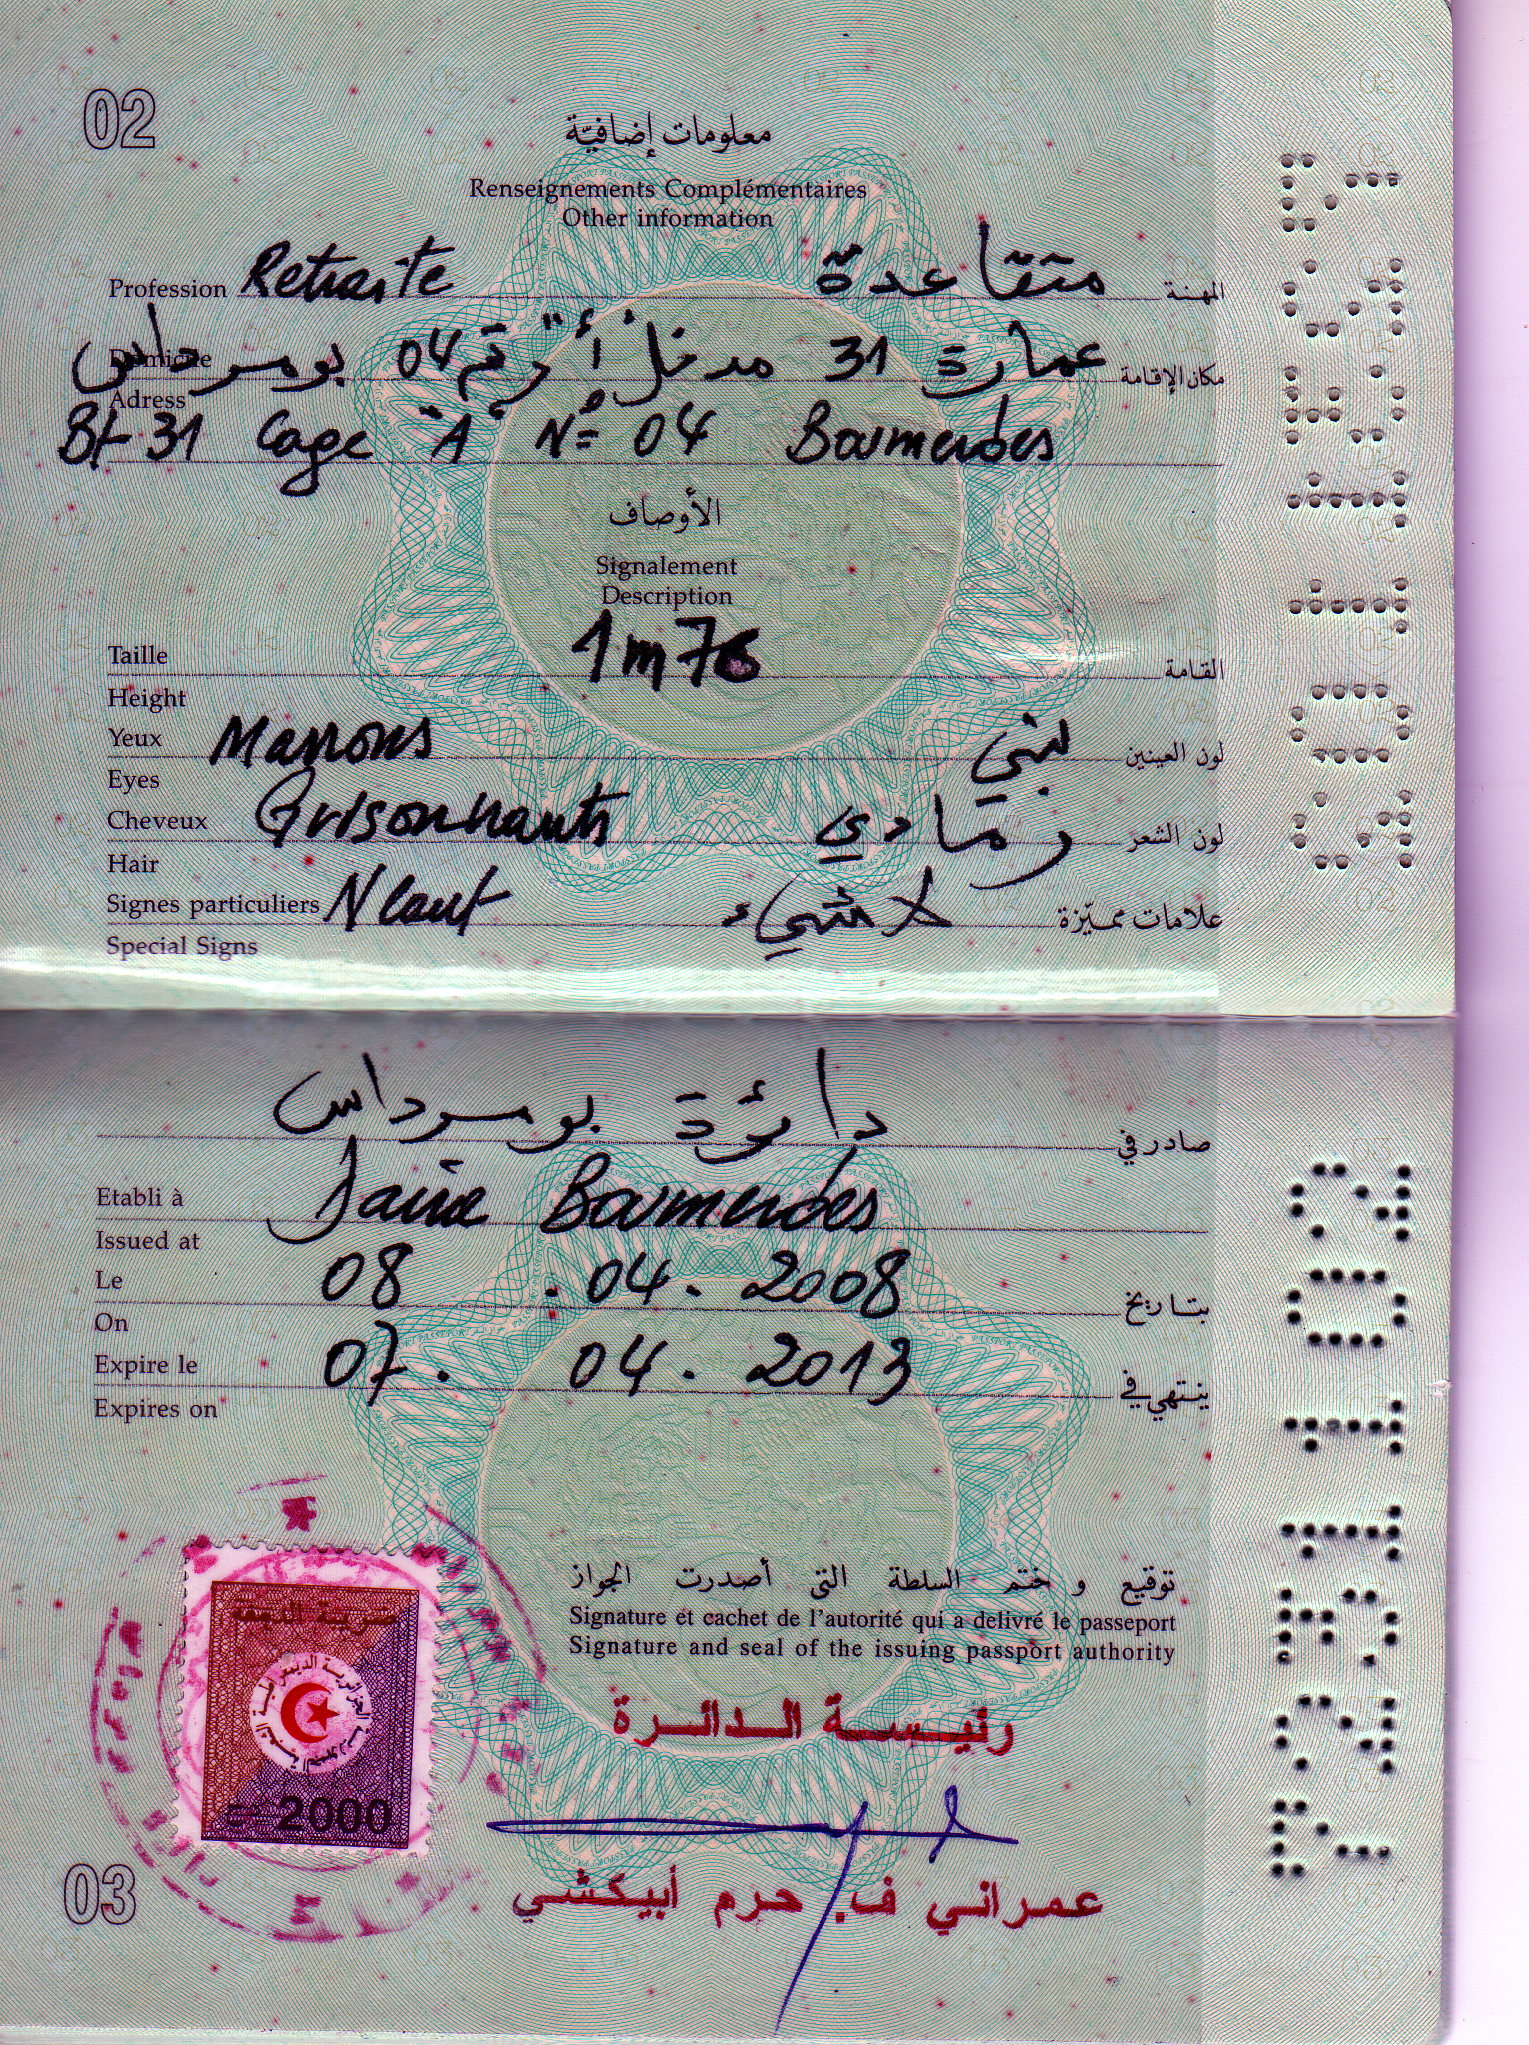 02
معلومات إضافيّة
Renseignements Complémentaires
Other information
Profession Retraite متقاعدة المهنة
Domicile عمارة 31 مدخل "أ" رقم 04 بومرداس مكان الإقامة
Adress
Bt 31 Cage "A" N° 04 Boumerdes
الأوصاف
Signalement
Description
Taille 1m76 القامة
Height
Yeux Marrons بني لون العينين
Eyes
Cheveux Grisonnants رمادي لون الشعر
Hair
Signes particuliers Néant لا شيء علامات مميّزة
Special Signs
دائرة بومرداس صادر في
Etabli à Daira Boumerdes
Issued at
Le 08 . 04 . 2008 بتاريخ
On
Expire le 07 . 04 . 2013 ينتهي في
Expires on
توقيع و ختم السلطة التى أصدرت الجواز
Signature et cachet de l'autorité qui a delivré le passeport
Signature and seal of the issuing passport authority
رئيسة الدائرة
عمراني ف. حرم أبيكشي
ضريبة الدمغة
2000 دج
03